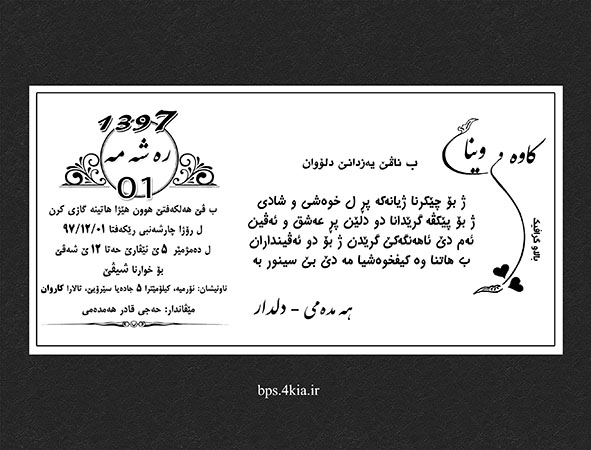 کاوە و وینا
ب ناڤێ یەزدانێ دلۆوان
ژ بۆ چێکرنا ژیانەکە پڕ ل خوەشی و شادی
ژ بۆ پێکڤە گرێدانا دو دلێن پڕ عەشق و ئەڤین
ئەم دێ ئاهەنگەکێ گرێدن ژ بۆ دو ئەڤینداران
ب هاتنا وە کیفخوەشیا مە دێ بێ سینور بە
هەمدەمی - دلدار
بالۆو گرافیک
1397
رەشەمە
01
ب ڤێ هەلکەفتێ هوون هێژا هاتینە گازی کرن
ل رۆژا چارشەنبی رێکەفتا ٩٧/١٢/٠١
ل دەمژمێر ٥ێ ئێڤارێ حەتا ١٢ێ شەڤێ
بۆ خوارنا شیڤێ
ناونیشان: ئۆرمیە، کیلۆمێترا ٥ جادەیا سێرۆیێ، تالارا کاروان
مێڤاندار: حەجی قادر هەمدەمی
bps.4kia.ir